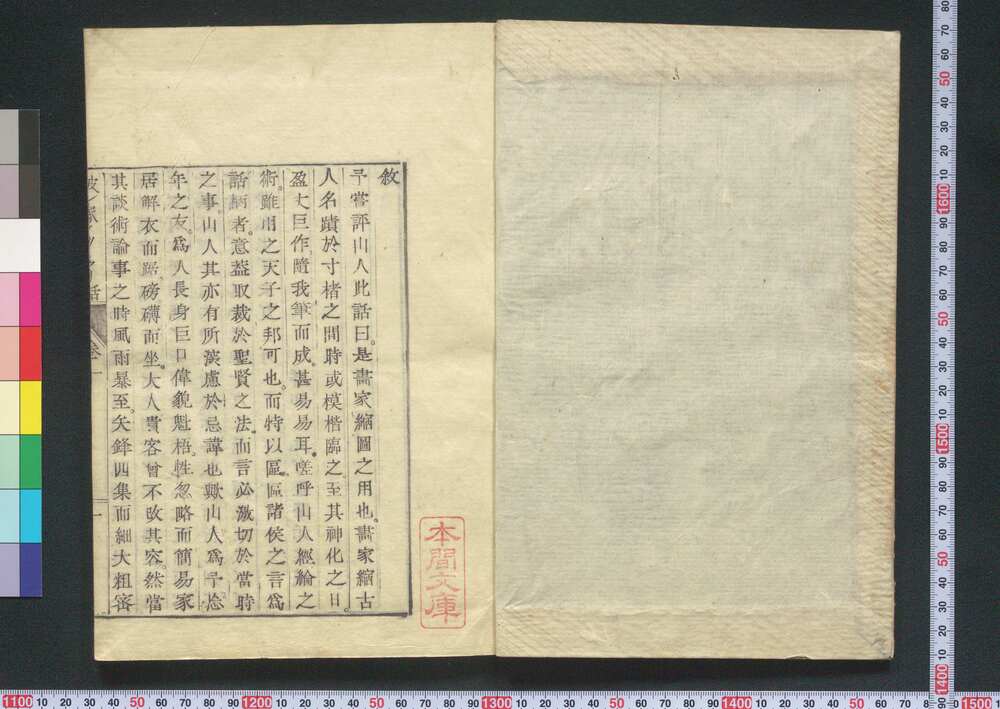 敘
予嘗評山人此話曰。是畫家縮圖之用也。畫家縮古
人名蹟於寸楮之間時或模楷臨之至其神化之日
盈丈巨作。隨我筆而成。甚易易耳。嗟呼山人經綸之
術。雖用之天子之邦可也。而特以區區諸侯之言爲
話柄者。意蓋取裁於聖賢之法。而言必激切於當時
之事山人其亦有所深慮於忌諱也歟山人爲予忘
年之友。爲人長身巨目偉貌魁梧。性忽略而簡易家
居解衣而踞。磅礴而坐。大人貴客曾不改其容。然當
其談術論事之時風雨暴至。矢鋒四集而細大粗密
話
卷一
一
本間文庫